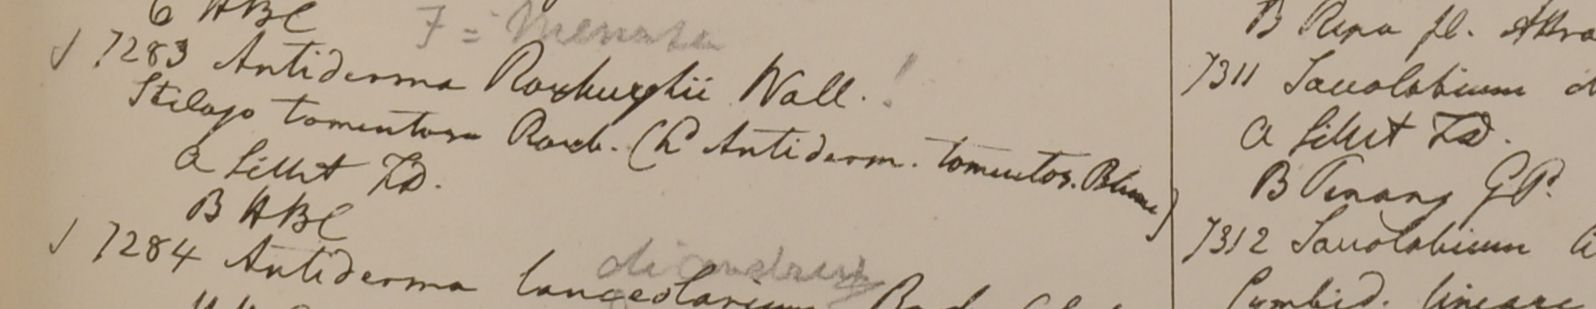 6 HBC
F = Menasu
√ 7283 Antiderma Roxburghii Wall. !
Stilago tomentosa Roxb. (h Antiderm. tomentos. Blume)
a Sillet FD.
B HBC
diandrum
√ 7284 Antiderma lanceolarium Roxb.
B Ripa fl. Attra
7311 Saccolabium
a Sillet FD.
B Penang GP.
7312 Saccolabium
Cymbid. lineare